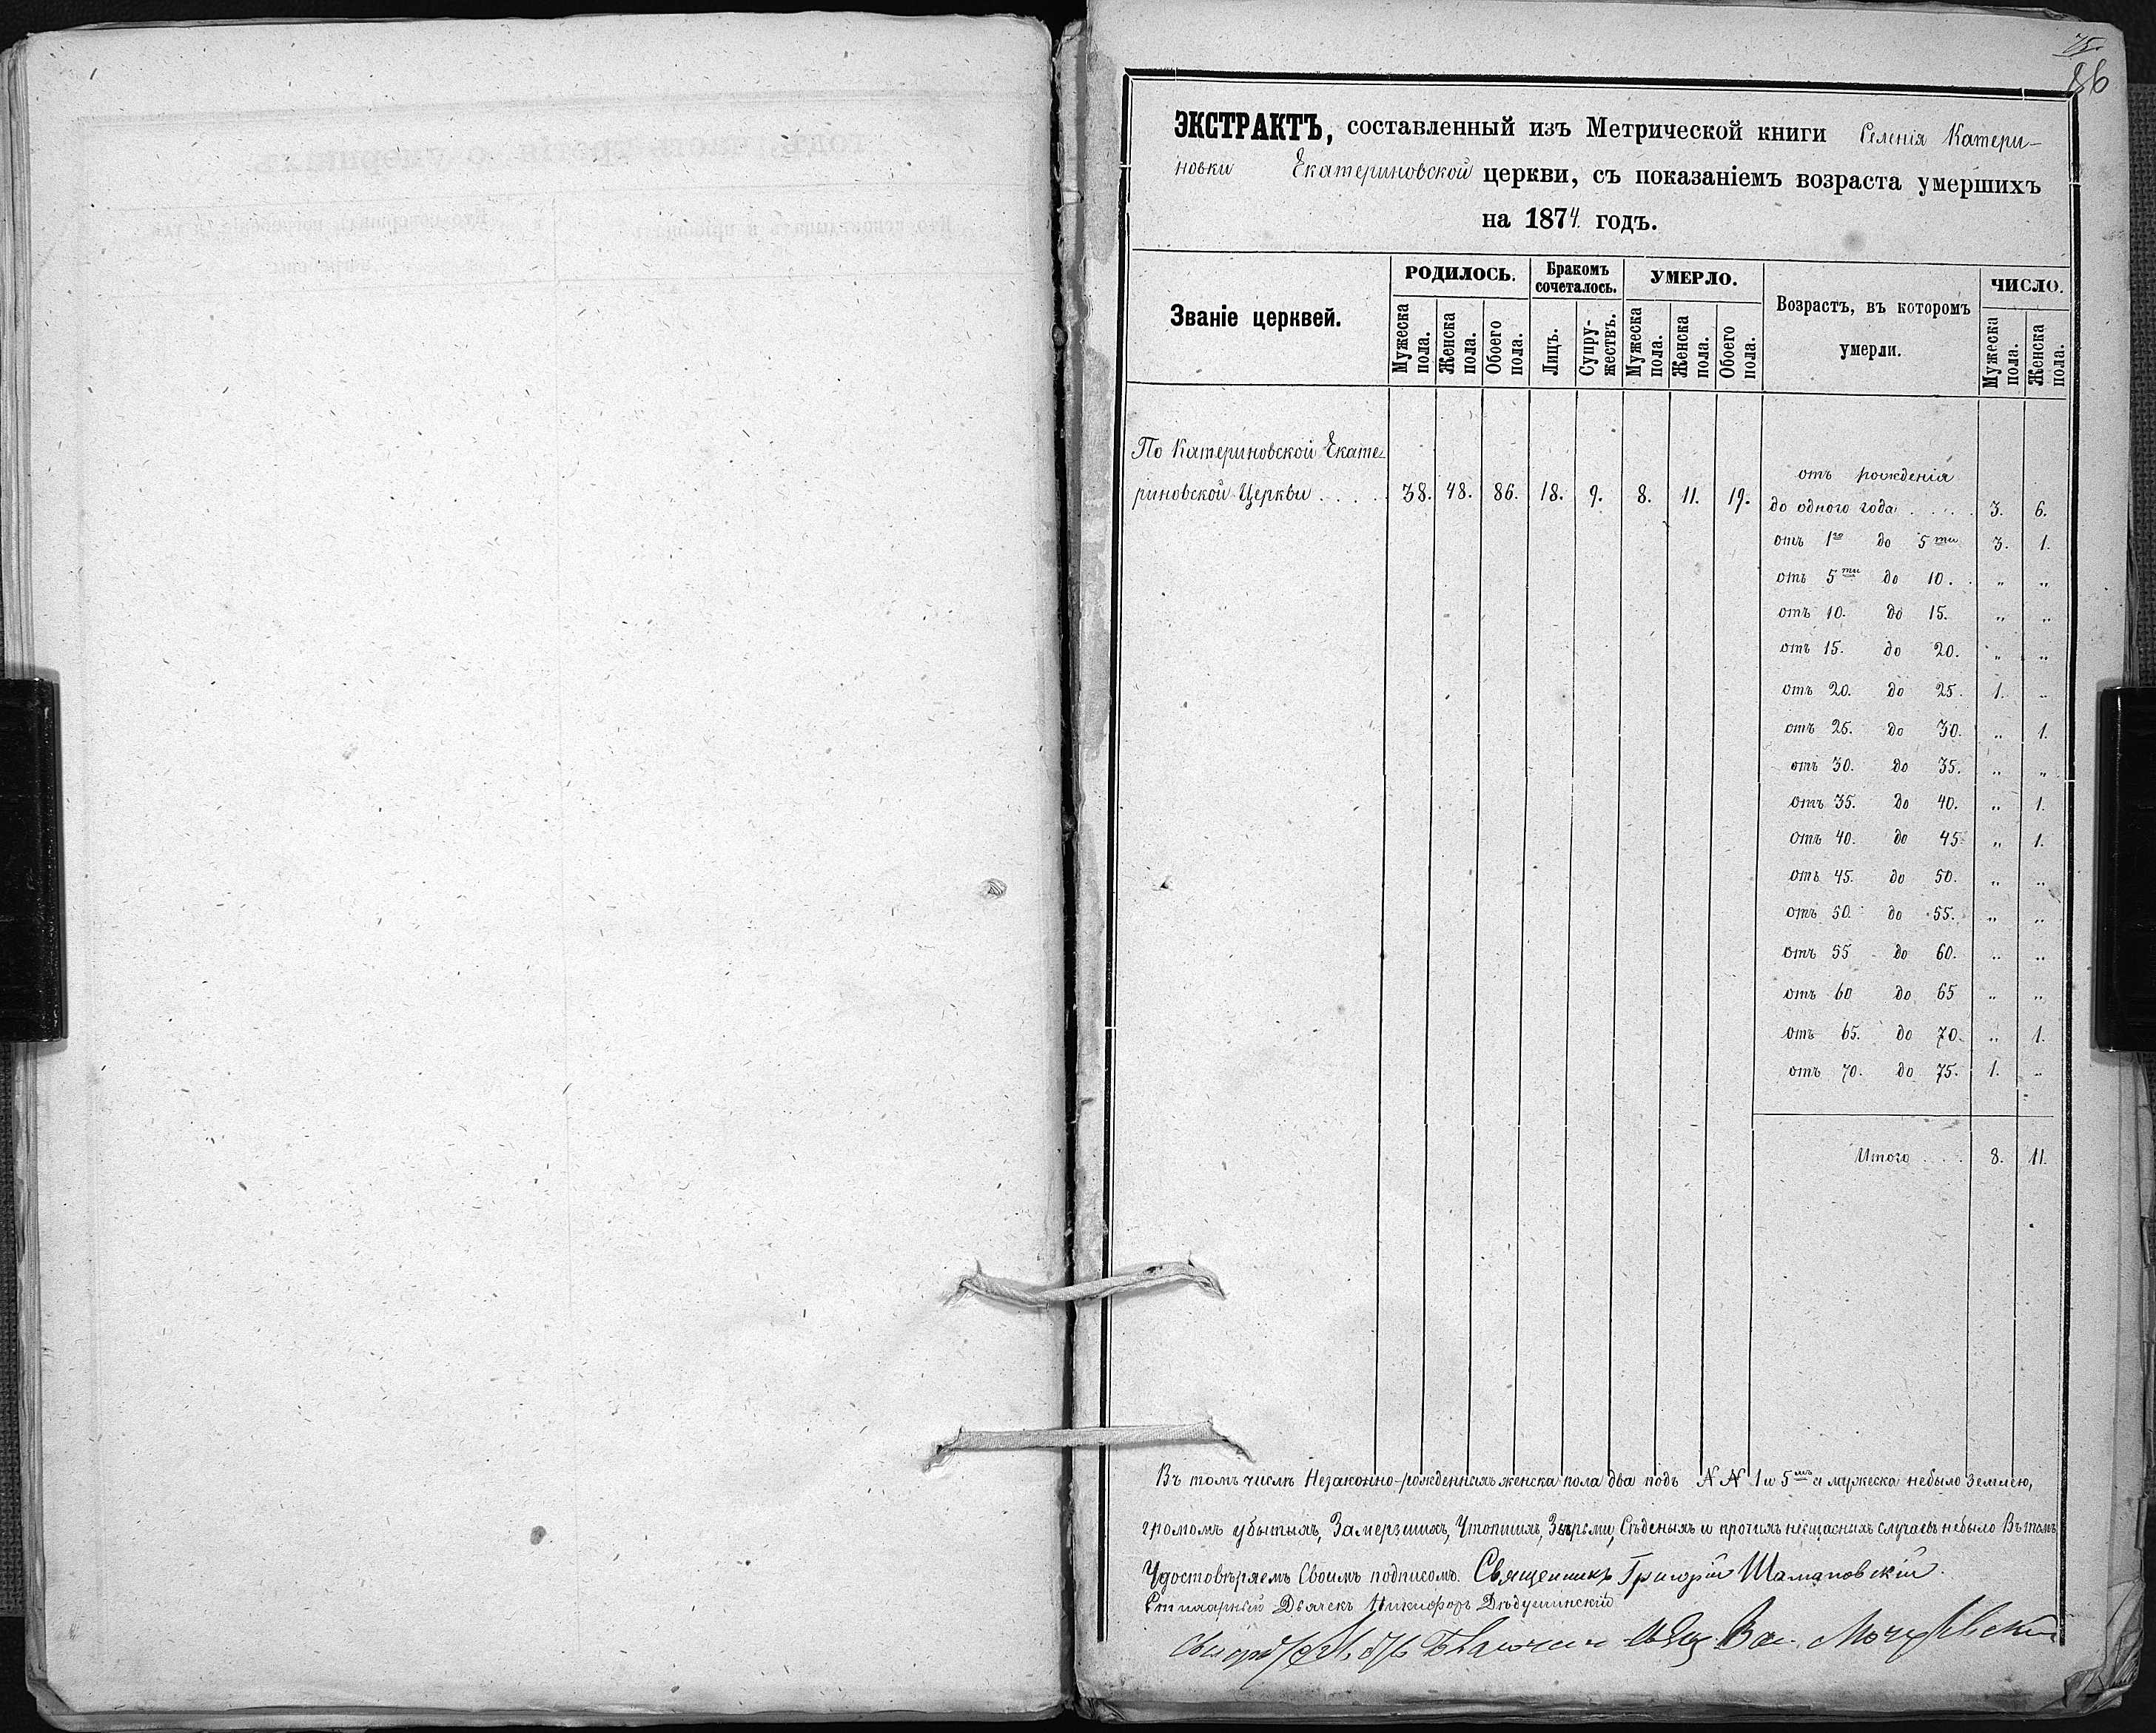 75.
86
ЭКСТРАКТЪ, составленный изъ Метрической книги Селенія Катери-
новки Екатериновской церкви, съ показаніемъ возраста умершихъ
на 1874 годъ.
Званіе церквей.
РОДИЛОСЬ.
Мужеска пола.
Женска пола.
Обоего пола.
Бракомъ сочеталось.
Лицъ.
Супру-жествъ.
УМЕРЛО.
Мужеска пола.
Женска пола.
Обоего пола.
Возрастъ, въ которомъ
умерли.
ЧИСЛО.
Мужеска пола.
Женска пола.
По Катериновской Екате-
риновской Церкви . . . . . 38. 48. 86. 18. 9. 8. 11. 19.
отъ рожденія
до одного года . . . . 3. 6.
отъ 1го до 5ти 3. 1.
отъ 5ти до 10. . „ „
отъ 10. до 15. „ „
отъ 15. до 20. „ „
отъ 20. до 25. 1. „
отъ 25. до 30. „ 1.
отъ 30. до 35. „ „
отъ 35. до 40. „ 1.
отъ 40. до 45. „ 1.
отъ 45. до 50. „ „
отъ 50. до 55. „ „
отъ 55 до 60. „ „
отъ 60 до 65 „ „
отъ 65. до 70. „ 1.
отъ 70. до 75. 1. „
Итого . . . . 8. 11.
Въ томъ числѣ Незаконно-рожденныхъ женска пола два подъ N N 1 и 5мъ а мужеска небыло Землею,
громомъ убытыхъ, Замерзшихъ, Утопшихъ, Звѣрьми, Съѣденыхъ и протихъ нещасныхъ случаевъ небыло Въ томъ
Удостовѣряемъ Своимъ подписомъ. Священникъ Григорій Шамановскій.
Дьячекъ Никифоръ Дѣдушинскій